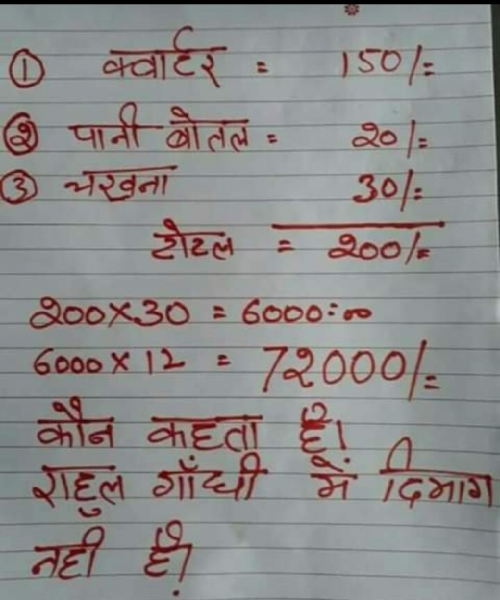 ① क्वार्टर = 150/=
② पानी बोतल = 20/=
③ चखना 30/=
टोटल = 200/=
200×30 = 6000=00
6000×12 = 72000/=
कौन कहता है।
राहुल गाँधी में दिमाग
नही है।